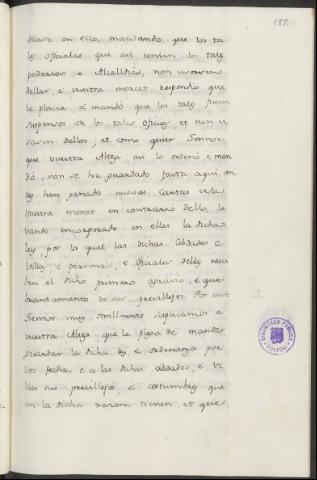 diese en ello, mandando, que los ta
les oficiales, que asi tenian los tales
poderios e Alcaldias, non usasen
dellas, e vuestra merced respondió que
le placia, e mandó que los tales fuesen
suspensos de los tales oficios, et non u
sasen dellos; et como quier Sennor,
que vuestra Alteza asi lo ordenó e man
dó, non se ha guardado fasta aqui, an
tes han pasado nuevas Cartas de la
vuestra merced en contrario dello, le
vando encorporado en ellas la dicha
ley, por lo qual las dichas Cibdades e
Villas, e personas, e oficiales dellas reci
ben el dicho primero agravio, e que
brantamiento de sus previllejos. Por ende
Sennor muy omillmente suplicamos a
vuestra Alteza, que le plega de mandar
guardar la dicha ley, e ordenanza por
vos fecha, e a las dichas cibdades, e Vi
llas sus previllejos, e costumbres que
en la dicha razon tienen, et que
BIBLIOTECA PÚBLICA
TOLEDO